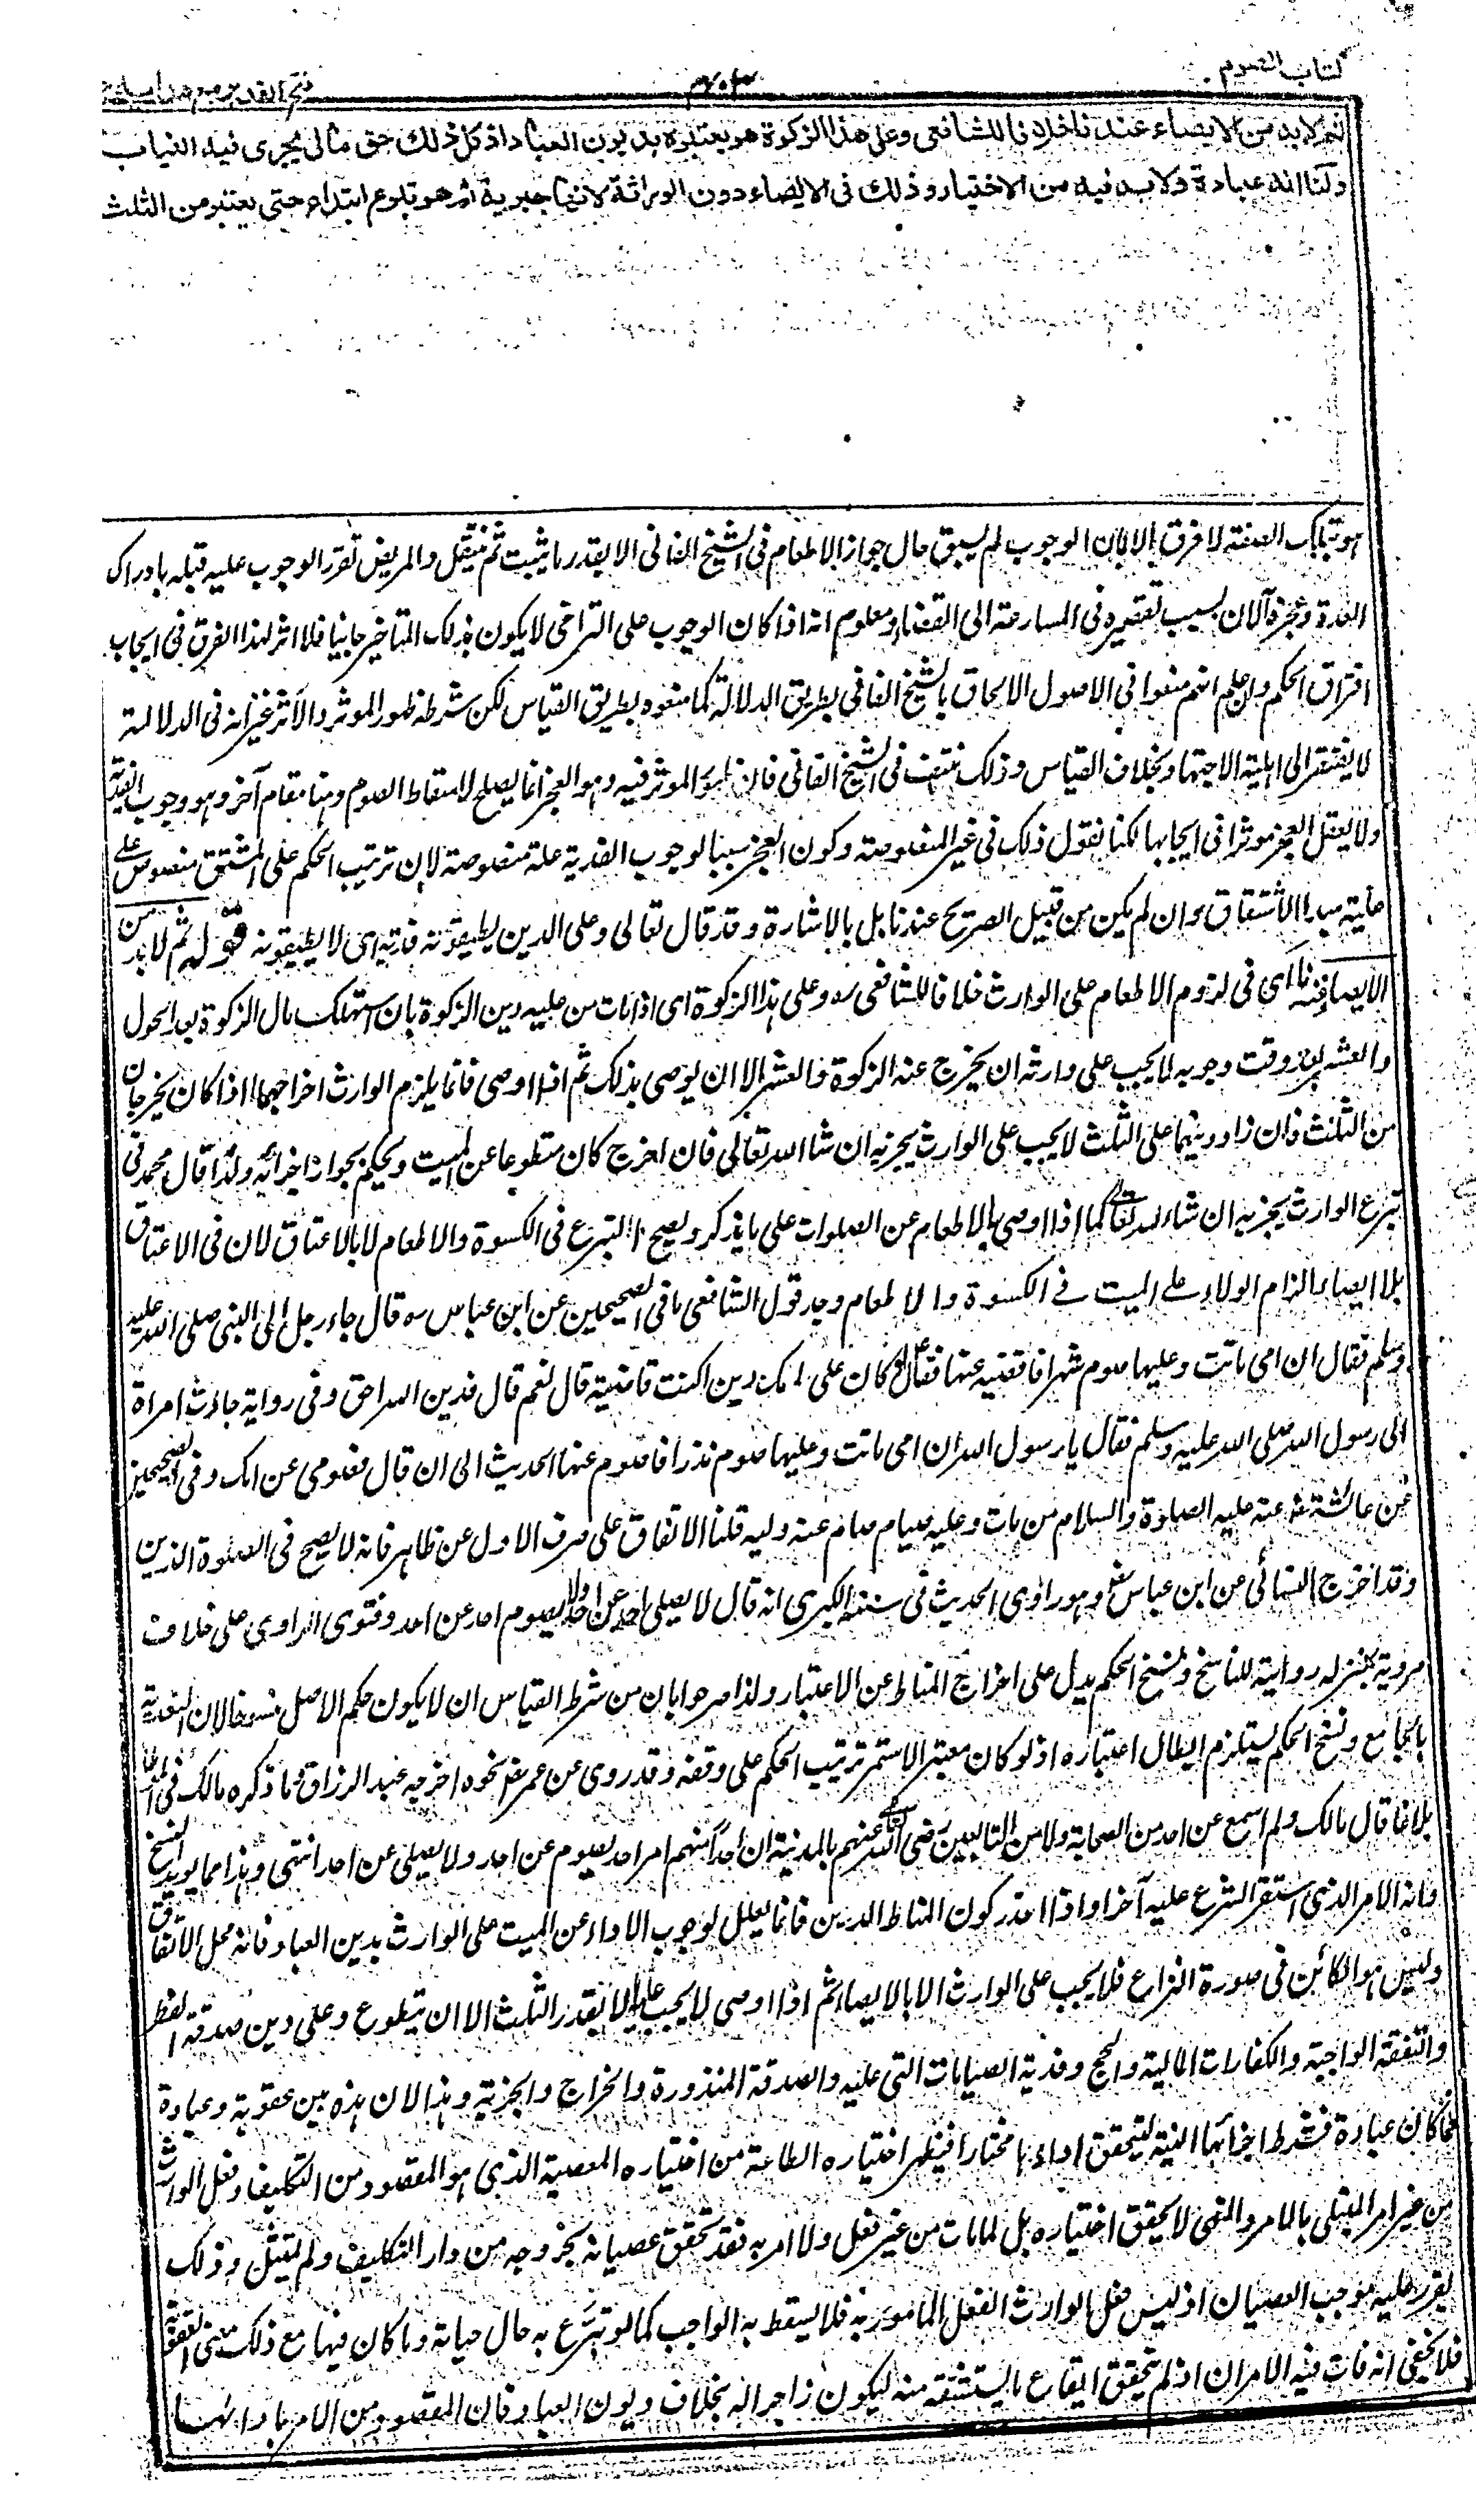 كتاب الصوم
٤٠٣
فتح القدير مع هداية
ثم لابد من الايصاء عندنا خلافا للشافعى وعلى هذا الزكوة هو يعتبره بديون العباد اذ كل ذلك حق مالى يجرى فيه النيابة
ولنا انه عبادة ولابد فيه من الاختيار وذلك فى الايصاء دون الوراثة لانها جبرية ثم هو تبرع ابتداء حتى يعتبر من الثلث
هو بتلك الصفة لا فرق الا بان الوجوب لم يسبق حال جواز الاطعام فى الشيخ الفانى الا بقدر ما يثبت ثم ينتقل والمريض تقرر الوجوب عليه قبله بادراك
العدة وعجزه الآن بسبب تقصيره فى المسارعة الى القضاء ومعلوم انه اذا كان الوجوب على التراخى لا يكون بذلك التاخير جانيا فلا اثر لهذا الفرق فى ايجاب
افتراق الحكم واعلم انهم منعوا فى الاصول الالحاق بالشيخ الفانى بطريق الدلالة كما منعوه بطريق القياس لكن شرطه ظهور الموثر والاثر غير انه فى الدلالة
لا يفتقر الى اهلية الاجتهاد بخلاف القياس وذلك منتف فى الشيخ الفانى فان الموثر فيه وهو العجز انما يصلح لاسقاط الصوم وهنا مقام آخر وهو وجوب الفدية
ولا يعقل العجز موثرا فى ايجابها لكنا نقول ذلك فى غير المنصوصة وكون العجز سببا لوجوب الفدية علة منصوصة لان ترتيب الحكم على المشتق منصوص على
علية مبدا الاشتقاق وان لم يكن من قبيل الصريح عندنا بل بالاشارة وقد قال تعالى وعلى الذين يطيقونه فدية اى لا يطيقونه قوله ثم لابد من
الايصاء عندنا اى فى لزوم الاطعام على الوارث خلافا للشافعى ره وعلى هذا الزكوة اى اذا مات من عليه دين الزكوة بان استهلك مال الزكوة بعد الحول
والعشر بعد وقت وجوبه لا يجب على وارثه ان يخرج عنه الزكوة والعشر الا ان يوصى بذلك ثم اذا اوصى فانما يلزم الوارث اخراجهما اذا كان يخرجان
من الثلث فان زاد دينهما على الثلث لا يجب على الوارث يجزيه ان شا الله تعالى فان اخرج كان متطوعا عن الميت ويحكم بجواز اجزائه ولذا قال محمد فى
تبرع الوارث يجزيه ان شاء الله تعالى كما اذا اوصى بالاطعام عن الصلوات على ما يذكر ويصح التبرع فى الكسوة والاطعام لا بالاعتاق لان فى الاعتاق
بلا ايصاء الزام الولاء على الميت فى الكسوة والاطعام وجه قول الشافعى ما فى الصحيحين عن ابن عباس ره قال جاء رجل الى النبى صلى الله عليه
وسلم فقال ان امى ماتت وعليها صوم شهر افاقضيه عنها فقال لو كان على امك دين اكنت قاضيه قال نعم قال فدين الله احق وفى رواية جاءت امراة
الى رسول الله صلى الله عليه وسلم فقال يا رسول الله ان امى ماتت وعليها صوم نذر افاصوم عنها الحديث الى ان قال فصومى عن امك وفى الصحيحين
عن عائشة عنه عليه الصلوة والسلام من مات وعليه صيام صام عنه وليه قلنا الاتفاق على صرف الاول عن ظاهره فانه لا يصح فى الصلوة الدين
وقد اخرج النسائى عن ابن عباس وهو راوى الحديث فى سننه الكبرى انه قال لا يصلى احد عن احد ولا يصوم احد عن احد وفتوى الراوى على خلاف
مرويه بمنزلة روايته للناسخ ونسخ الحكم يدل على اخراج المناط عن الاعتبار ولذا صرحوا بان من شرط القياس ان لا يكون حكم الاصل منسوخا لان التعدية
بالجامع ونسخ الحكم يستلزم ابطال اعتباره اذ لو كان معتبرا لاستمر ترتيب الحكم على وقفه وقد روى عن عمر نحوه اخرجه عبد الرزاق وما ذكره مالك فى الموطا
بلاغا قال مالك ولم اسمع عن احد من الصحابة ولا من التابعين رضى الله تعالى عنهم بالمدينة ان احدا منهم امر احد يصوم عن احد ولا يصلى عن احد انتهى وهذا مما يويد النسخ
وانه الامر الذى استقر الشرع عليه آخرا واذا اهدر كون المناط الدين فانما يعلل لوجوب الاداء عن الميت على الوارث بدين العباد فانه محل الاتفاق
وليس هو الكائن فى صورة النزاع فلا يجب على الوارث الا بالايصاء ثم اذا اوصى لا يجب عليه الا بقدر الثلث الا ان يتطوع وعلى دين صدقة الفطر
والنفقة الواجبة والكفارات المالية والحج وفدية الصيامات التى عليه والصدقة المنذورة والخراج والجزية وهذا لان هذه بين عقوبة وعبادة
فما كان عبادة فشرط اجزائها النية ليتحقق اداءها مختارا فيظهر اختياره الطاعة من اختياره المعصية الذى هو المقصود من التكليف وفعل الوارث
من غير امر المبتلى بالامر والنهى لا يحقق اختياره بل لما مات من غير فعل ولا امر به فقد تحقق عصيانه بخروجه من دار التكليف ولم يمتثل وذلك
يقرر عليه موجب العصيان اذ ليس فعل الوارث الفعل المامور به فلا يسقط به الواجب كما لو تبرع به حال حياته وما كان فيها مع ذلك معنى العقوبة
فلا يخفى انه فات فيه الامران اذ لم يتحقق ايقاع ما يستشقه منه ليكون زاجرا له بخلاف ديون العباد فان المقصود من الامر بادائها